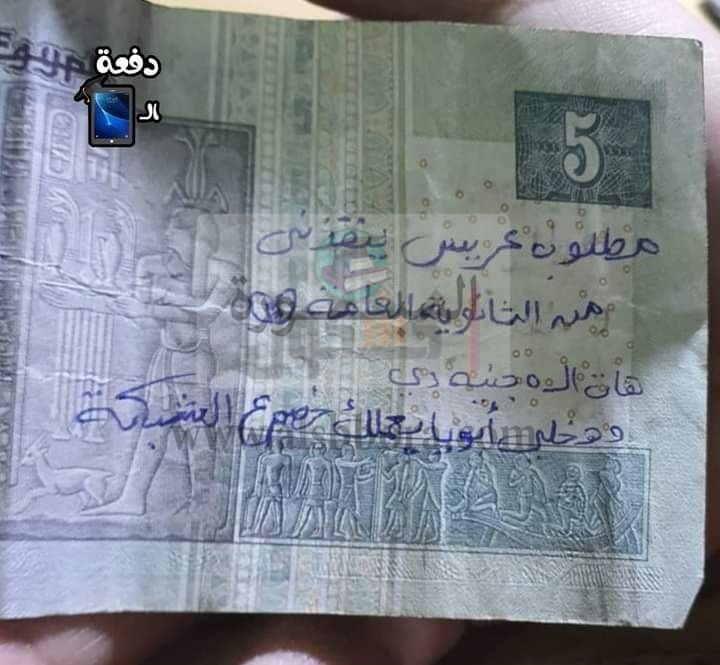 Egyp
دفعة
الـ
5
مطلوب عريس ينقذني
من الثانوية العامة
هات الـ ٥ جنيه دي
وخلي أبويا يعملك خصم ع الشبكة